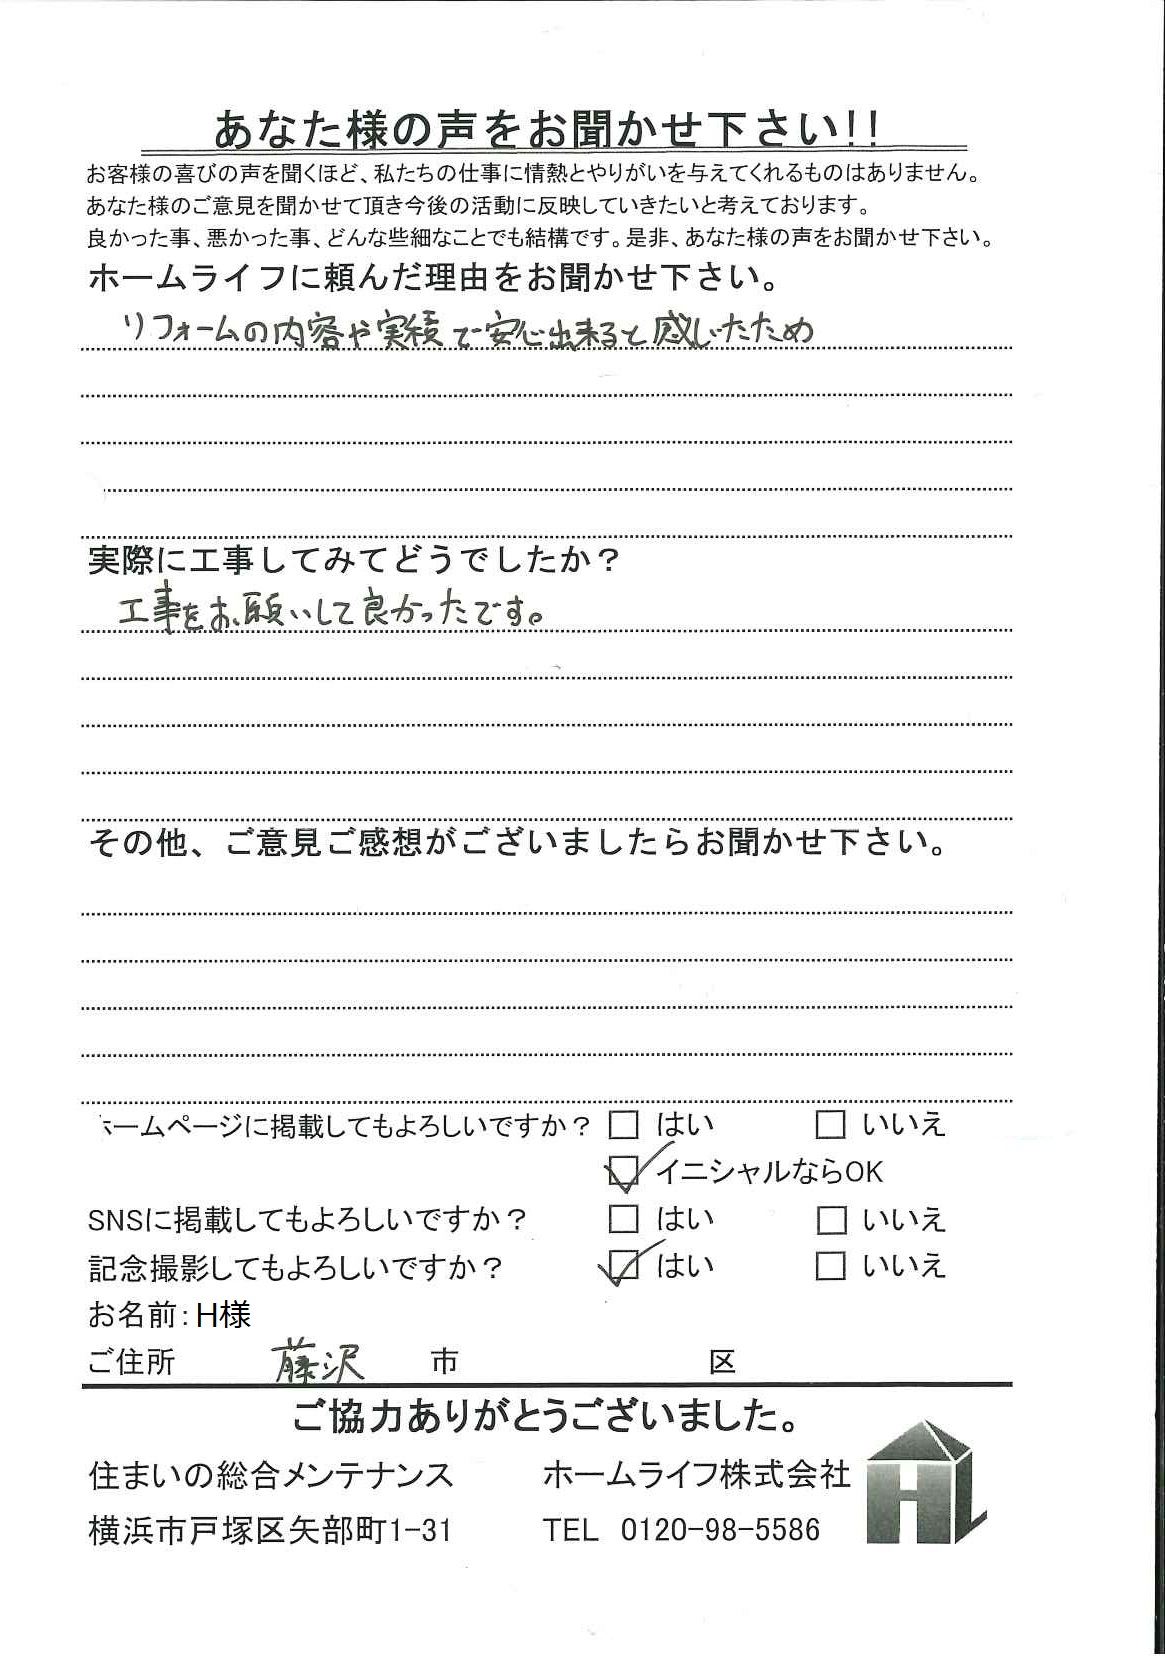 あなた様の声をお聞かせ下さい!!
お客様の喜びの声を聞くほど、私たちの仕事に情熱とやりがいを与えてくれるものはありません。
あなた様のご意見を聞かせて頂き今後の活動に反映していきたいと考えております。
良かった事、悪かった事、どんな些細なことでも結構です。是非、あなた様の声をお聞かせ下さい。
ホームライフに頼んだ理由をお聞かせ下さい。
リフォームの内容や実績で安心出来ると感じたため
実際に工事してみてどうでしたか？
工事をお願いして良かったです。
その他、ご意見ご感想がございましたらお聞かせ下さい。
ホームページに掲載してもよろしいですか？ □ はい □ いいえ
☑ イニシャルならOK
SNSに掲載してもよろしいですか？ □ はい □ いいえ
記念撮影してもよろしいですか？ ☑ はい □ いいえ
お名前：H様
ご住所 藤沢 市 区
ご協力ありがとうございました。
住まいの総合メンテナンス ホームライフ株式会社
横浜市戸塚区矢部町1-31 TEL 0120-98-5586
HL